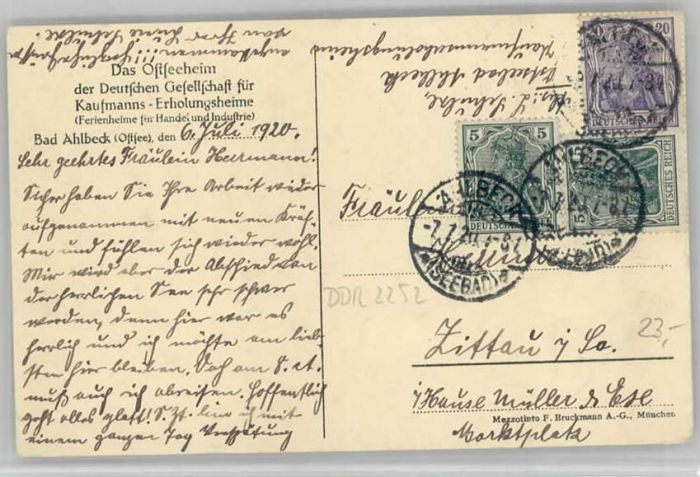 Das Ostseeheim
der Deutschen Gesellschaft für
Kaufmanns-Erholungsheime
(Ferienheime für Handel und Industrie)
Bad Ahlbeck (Ostsee), den 6. Juli 1920.
Sehr geehrtes Fräulein Herrmann!
Sicher haben Sie Ihre Arbeit wieder
aufgenommen mit neuen Kräf-
ten und fühlen sich wieder wohl.
Mir wird aber der Abschied von
der herrlichen See sehr schwer
werden, denn hier war es
herrlich und ich möchte am lieb-
sten hier bleiben. Doch am 8. ct.
muß auch ich abreisen. Hoffentlich
geht alles glatt! S. Zt. bin ich mit
einem ganzen Tag Verspätung
angekommen!!!
von Ihrer Schulze.
Schulze,
Ostseebad Ahlbeck
Kaufmannserholungsheim
Fräul
Zittau i/Sa.
i/Hause Müller &
Marktplatz
Mezzotinto F. Bruckmann A.-G., München
DDR 2252
23,-
20
DEUTSCHES REICH
5 5
DEUTSCHES REICH
5
DEUTSCHES REICH
AHLBECK
(SEEBAD)
AHLBECK